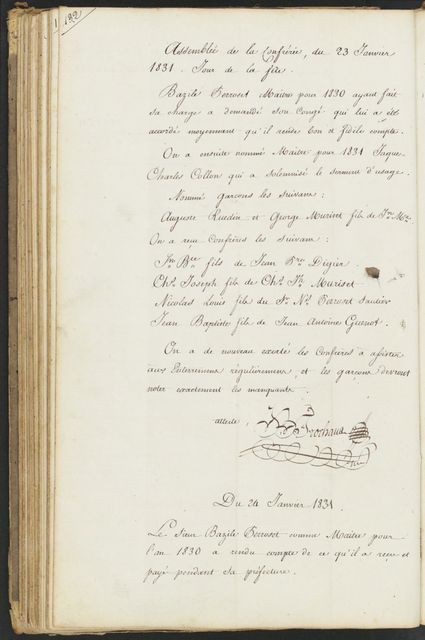 182
Assemblée de la Confrérie, du 23 Janvier
1831. Jour de la fête.
Bazile Perroset Maitre pour 1830 ayant fait
sa charge a demandé son Congé qui lui a été
accordé moyennant qu'il rende bon et fidèle compte.
On a ensuite nommé Maitre pour 1831 Jaque
Charles Collon qui a solemnisé le serment d'usage.
Nommé garçons les suivans :
Auguste Ruedin et George Muriset fils de
On a reçu Confrères les suivans :
Jn. Bte. fils de Jean Frs. Digier.
Chs. Joseph fils de Chs. Fs. Muriset
Nicolas Louis fils du Sr. Ns. Perroset Sautier
Jean Baptiste fils de Jean Antoine Guenot.
On a de nouveau exorté les Confrères à assister
aux Enterremens régulièrement, et les garçons devront
noter exactement les manquants.
atteste,
Frochaux
Du 24 Janvier 1831.
Le Sieur Bazile Perroset comme Maitre pour
l'an 1830 a rendu compte de ce qu'il a reçu et
payé pendant sa préfecture.